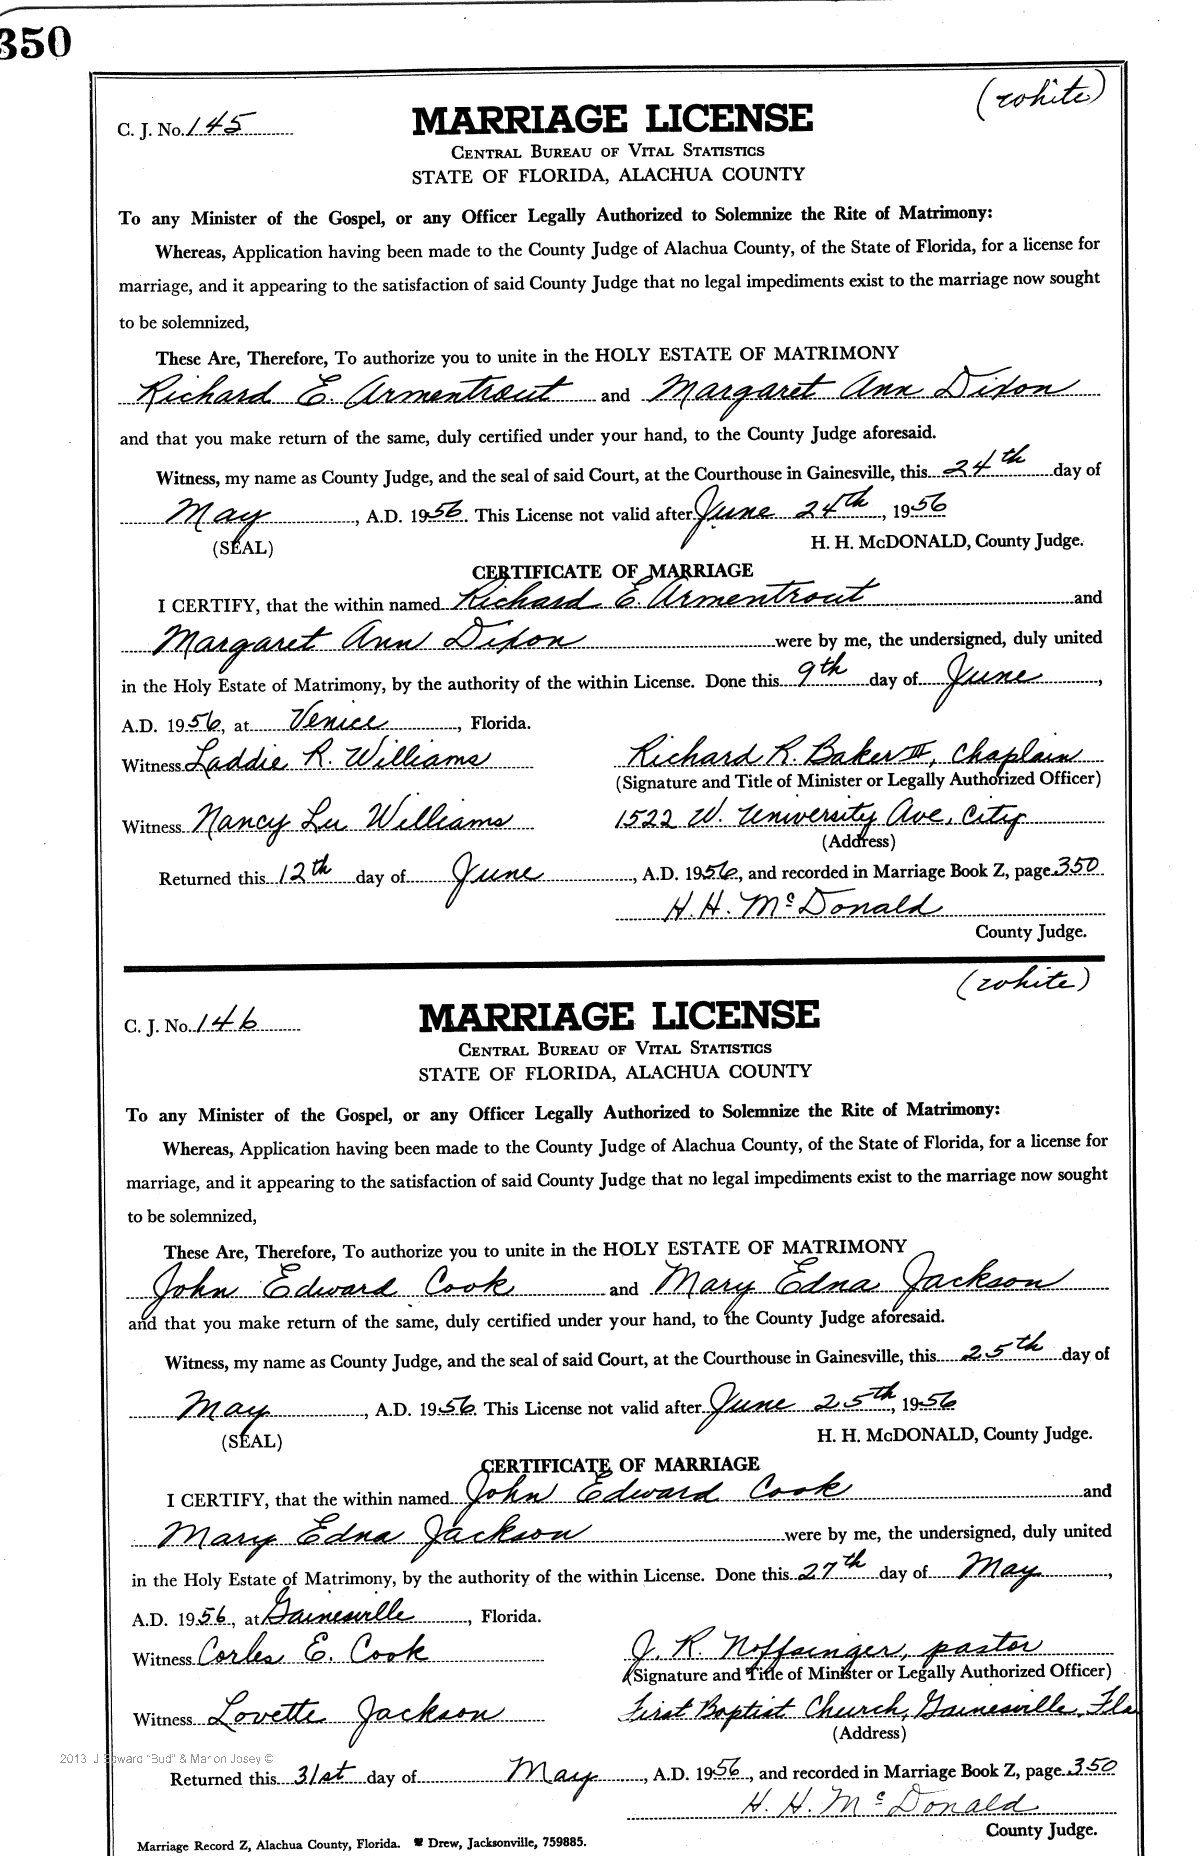 350
(white)
C. J. No. 145
MARRIAGE LICENSE
CENTRAL BUREAU OF VITAL STATISTICS
STATE OF FLORIDA, ALACHUA COUNTY
To any Minister of the Gospel, or any Officer Legally Authorized to Solemnize the Rite of Matrimony:
Whereas, Application having been made to the County Judge of Alachua County, of the State of Florida, for a license for
marriage, and it appearing to the satisfaction of said County Judge that no legal impediments exist to the marriage now sought
to be solemnized,
These Are, Therefore, To authorize you to unite in the HOLY ESTATE OF MATRIMONY
Richard E. Armentrout and Margaret Ann Dixon
and that you make return of the same, duly certified under your hand, to the County Judge aforesaid.
Witness, my name as County Judge, and the seal of said Court, at the Courthouse in Gainesville, this 24th day of
May, A.D. 1956. This License not valid after June 24th, 1956
(SEAL) H. H. McDONALD, County Judge.
CERTIFICATE OF MARRIAGE
I CERTIFY, that the within named Richard E. Armentrout and
Margaret Ann Dixon were by me, the undersigned, duly united
in the Holy Estate of Matrimony, by the authority of the within License. Done this 9th day of June,
A.D. 1956, at Venice, Florida.
Witness Laddie R. Williams Richard R. Baker III, Chaplain
(Signature and Title of Minister or Legally Authorized Officer)
Witness Nancy Lu Williams 1522 W. University Ave, City
(Address)
Returned this 12th day of June, A.D. 1956, and recorded in Marriage Book Z, page 350
H. H. McDonald
County Judge.
(white)
C. J. No. 146
MARRIAGE LICENSE
CENTRAL BUREAU OF VITAL STATISTICS
STATE OF FLORIDA, ALACHUA COUNTY
To any Minister of the Gospel, or any Officer Legally Authorized to Solemnize the Rite of Matrimony:
Whereas, Application having been made to the County Judge of Alachua County, of the State of Florida, for a license for
marriage, and it appearing to the satisfaction of said County Judge that no legal impediments exist to the marriage now sought
to be solemnized,
These Are, Therefore, To authorize you to unite in the HOLY ESTATE OF MATRIMONY
John Edward Cook and Mary Edna Jackson
and that you make return of the same, duly certified under your hand, to the County Judge aforesaid.
Witness, my name as County Judge, and the seal of said Court, at the Courthouse in Gainesville, this 25th day of
May, A.D. 1956. This License not valid after June 25th, 1956
(SEAL) H. H. McDONALD, County Judge.
CERTIFICATE OF MARRIAGE
I CERTIFY, that the within named John Edward Cook and
Mary Edna Jackson were by me, the undersigned, duly united
in the Holy Estate of Matrimony, by the authority of the within License. Done this 27th day of May,
A.D. 1956, at Gainesville, Florida.
Witness Corles E. Cook J. R. Noffsinger, pastor
(Signature and Title of Minister or Legally Authorized Officer)
Witness Lovette Jackson First Baptist Church, Gainesville, Fla
(Address)
2013 J Edward "Bud" & Marion Josey ©
Returned this 31st day of May, A.D. 1956, and recorded in Marriage Book Z, page 350
H. H. McDonald
County Judge.
Marriage Record Z, Alachua County, Florida. Drew, Jacksonville, 759885.